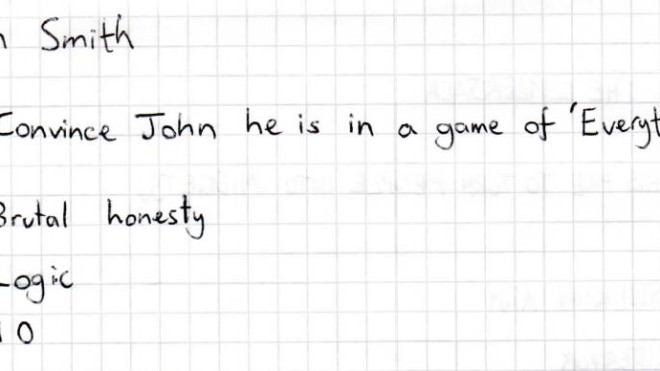 Smith
Convince John he is in a game of 'Everyt
Brutal honesty
Logic
10